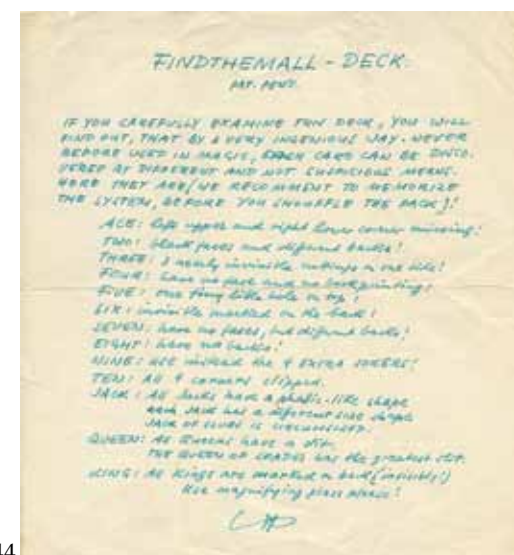 FINDTHEMALL - DECK.
PAT. PENT.
IF YOU CAREFULLY EXAMINE THIS DECK, YOU WILL
FIND OUT, THAT BY A VERY INGENIOUS WAY. NEVER
BEFORE USED IN MAGIC, EACH CARD CAN BE DISCO-
VERED BY DIFFERENT AND NOT SUSPICIOUS MEANS.
HERE THEY ARE (WE RECOMMENT TO MEMORIZE
THE SYSTEM, BEFORE YOU SHUFFLE THE PACK)!
ACE: left upper and right lower corner missing!
TWO: blank faces and different backs!
THREE: 3 nearly invisible cuttings on one side!
FOUR: have no face and no backprinting!
FIVE: one tiny little hole on top!
SIX: invisible marked on the back!
SEVEN: have no faces, but different backs!
EIGHT: have no backs!
NINE: use instead the 4 EXTRA JOKERS!
TEN: All 4 corners clipped.
JACK: All Jacks have a phallic-like shape
each JACK has a different size shape
JACK OF CLUBS IS CIRCUMCISED.
QUEEN: All Queens have a slit.
THE QUEEN OF SPADES has the greatest slit.
KING: All Kings are marked on back (invisibly!)
Use magnifying glass please!
44